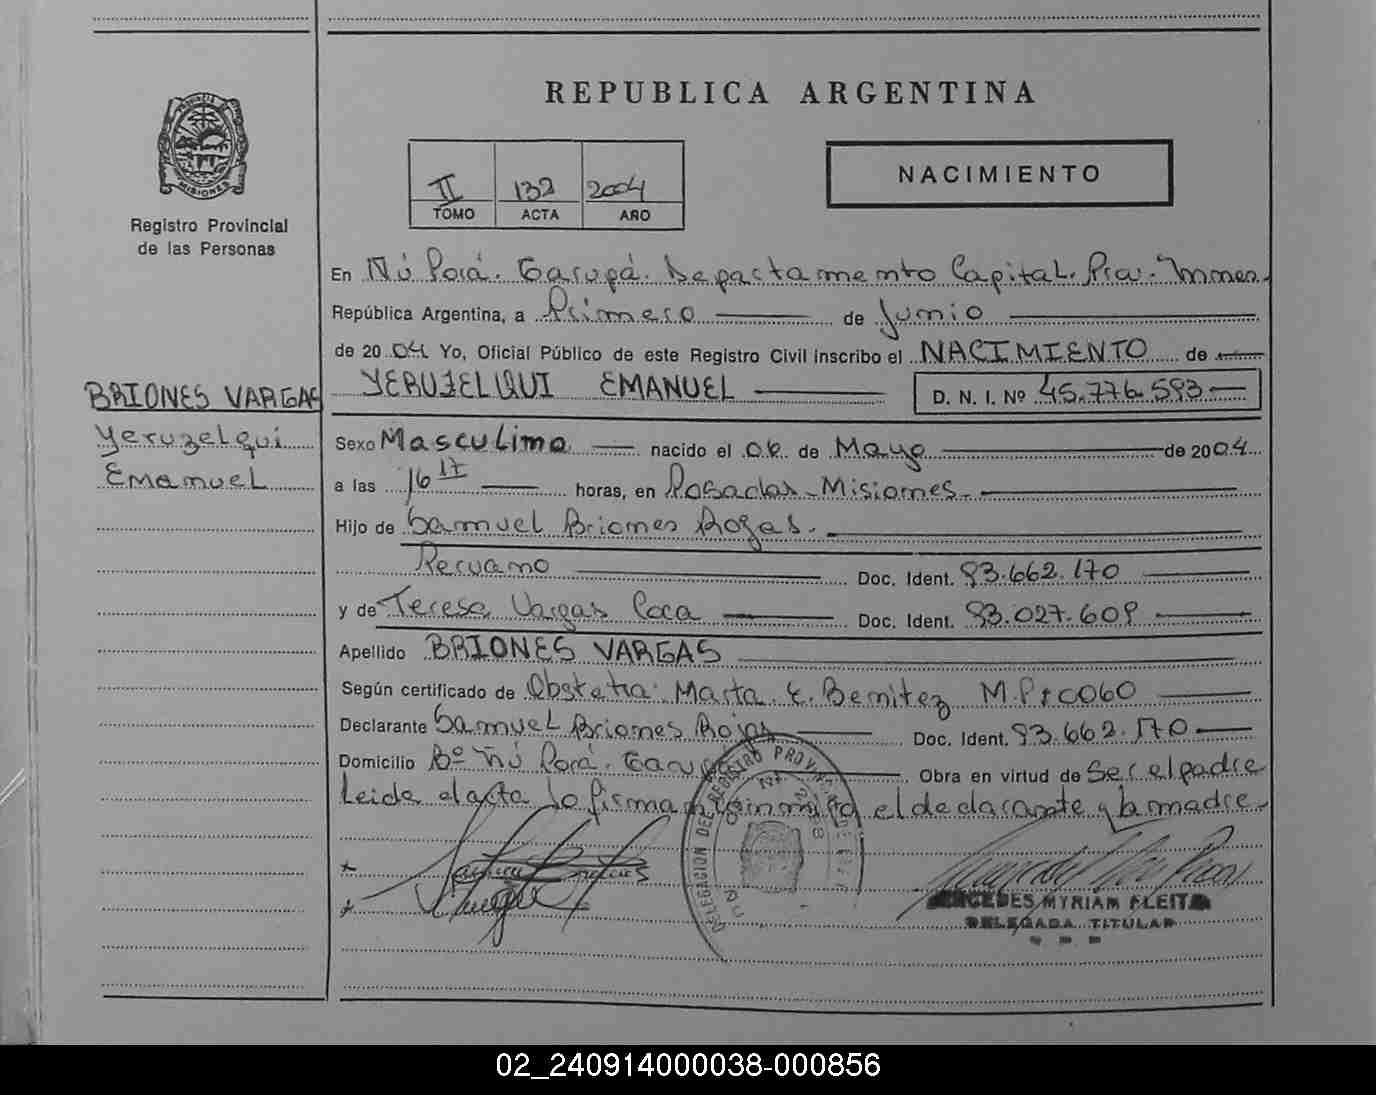 REPUBLICA ARGENTINA
PROVINCIA DE MISIONES
Registro Provincial
de las Personas
II 132 2004
TOMO ACTA AÑO
NACIMIENTO
En Ñú Porá. Garupá. Departamento Capital. Prov. Mnes.
República Argentina, a Primero de Junio
de 2004 Yo, Oficial Público de este Registro Civil inscribo el NACIMIENTO de
YERUZELQUI EMANUEL D. N. I. Nº 45.776.593
BRIONES VARGAS
Yeruzelqui
Emanuel
Sexo Masculino nacido el 06 de Mayo de 2004
a las 16 17 horas, en Posadas - Misiones.
Hijo de Samuel Briones Rojas.
Peruano Doc. Ident. 93.662.170
y de Teresa Vargas Poca Doc. Ident. 93.027.609
Apellido BRIONES VARGAS
Según certificado de Obstetra: Marta E. Benitez M.P: 0060
Declarante Samuel Briones Rojas Doc. Ident. 93.662.170
Domicilio Bº Ñú Porá. Garupá. Obra en virtud de Ser el padre
Leida el acta lo firman conmigo el declarante y la madre.
DELEGACION DEL REGISTRO
MERCEDES MYRIAM FLEITA
DELEGADA TITULAR
02_240914000038-000856